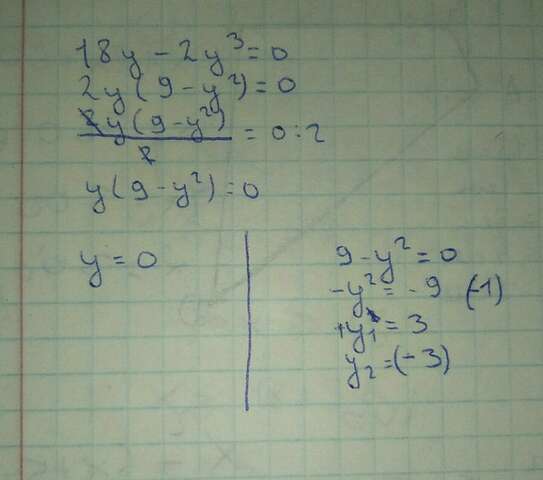 18y - 2y³ = 0
2y(9 - y²) = 0
2y(9 - y²) / 2 = 0 : 2
y(9 - y²) = 0
y = 0
9 - y² = 0
-y² = -9 (-1)
+y₁ = 3
y₂ = (-3)